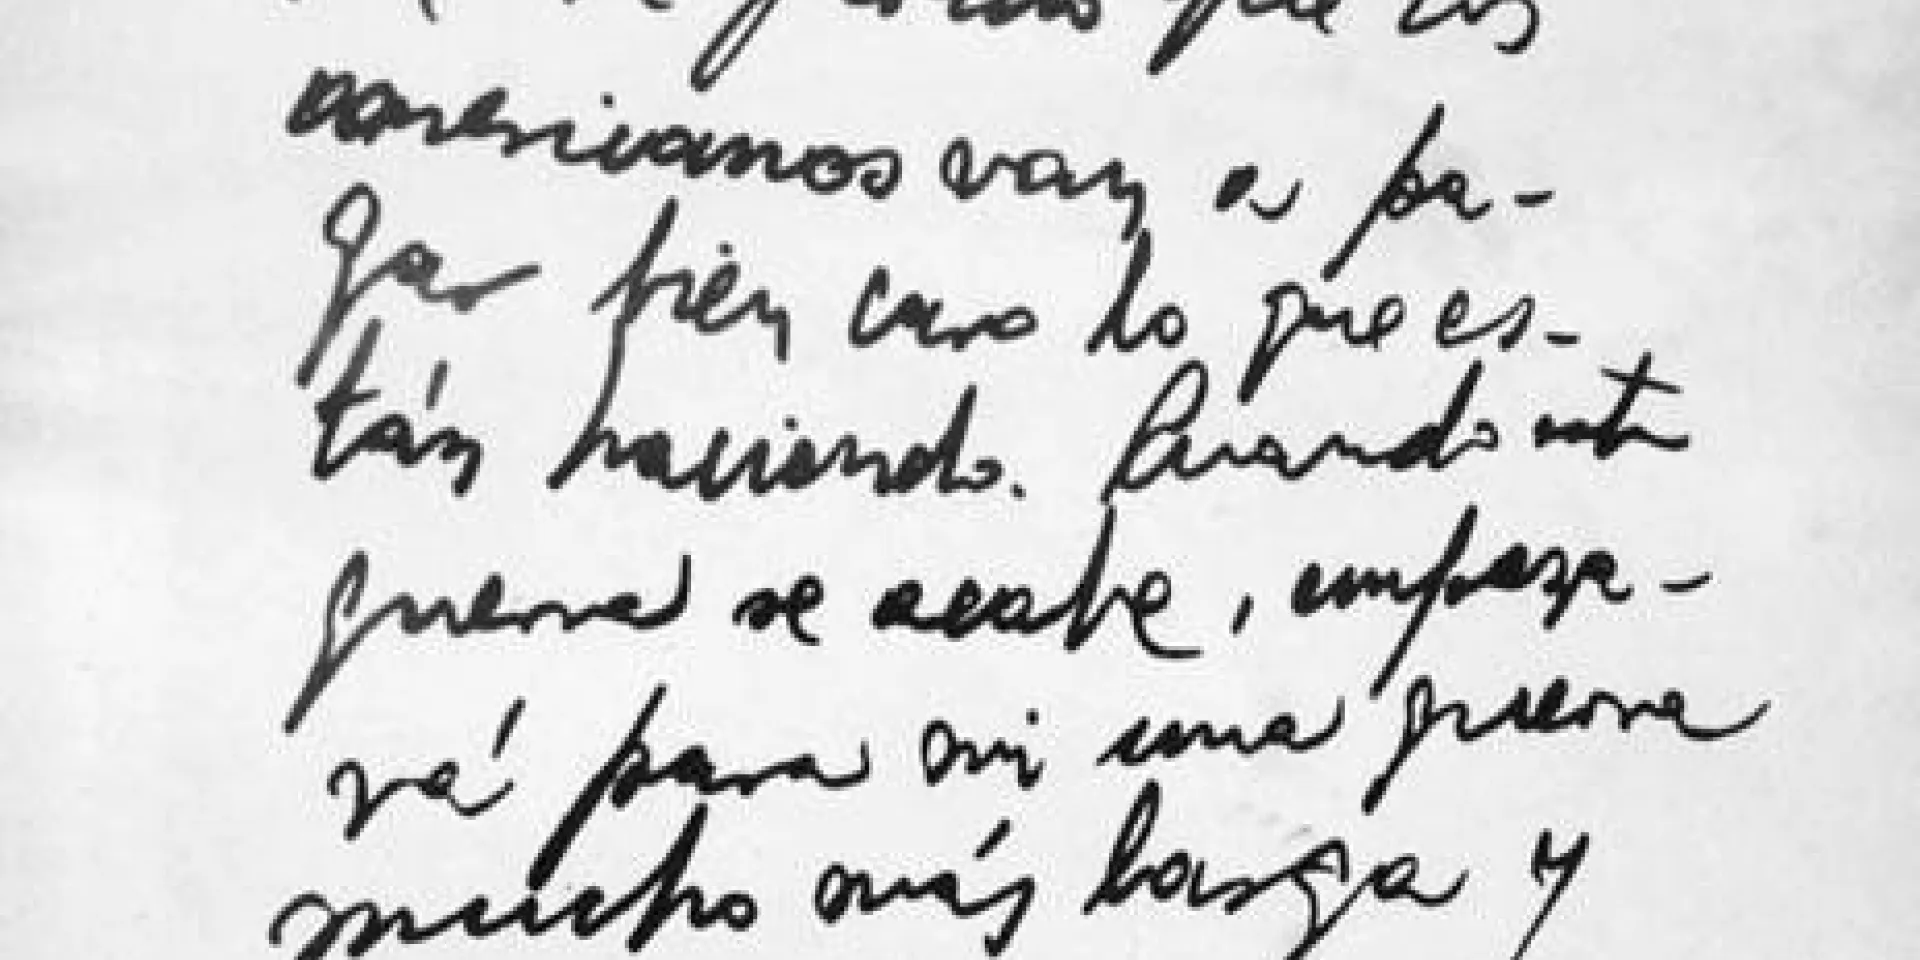 que los
americanos van a pa-
gar bien caro lo que es-
tán haciendo. Cuando esta
guerra se acabe, empeza-
rá para mi una guerra
mucho más larga y